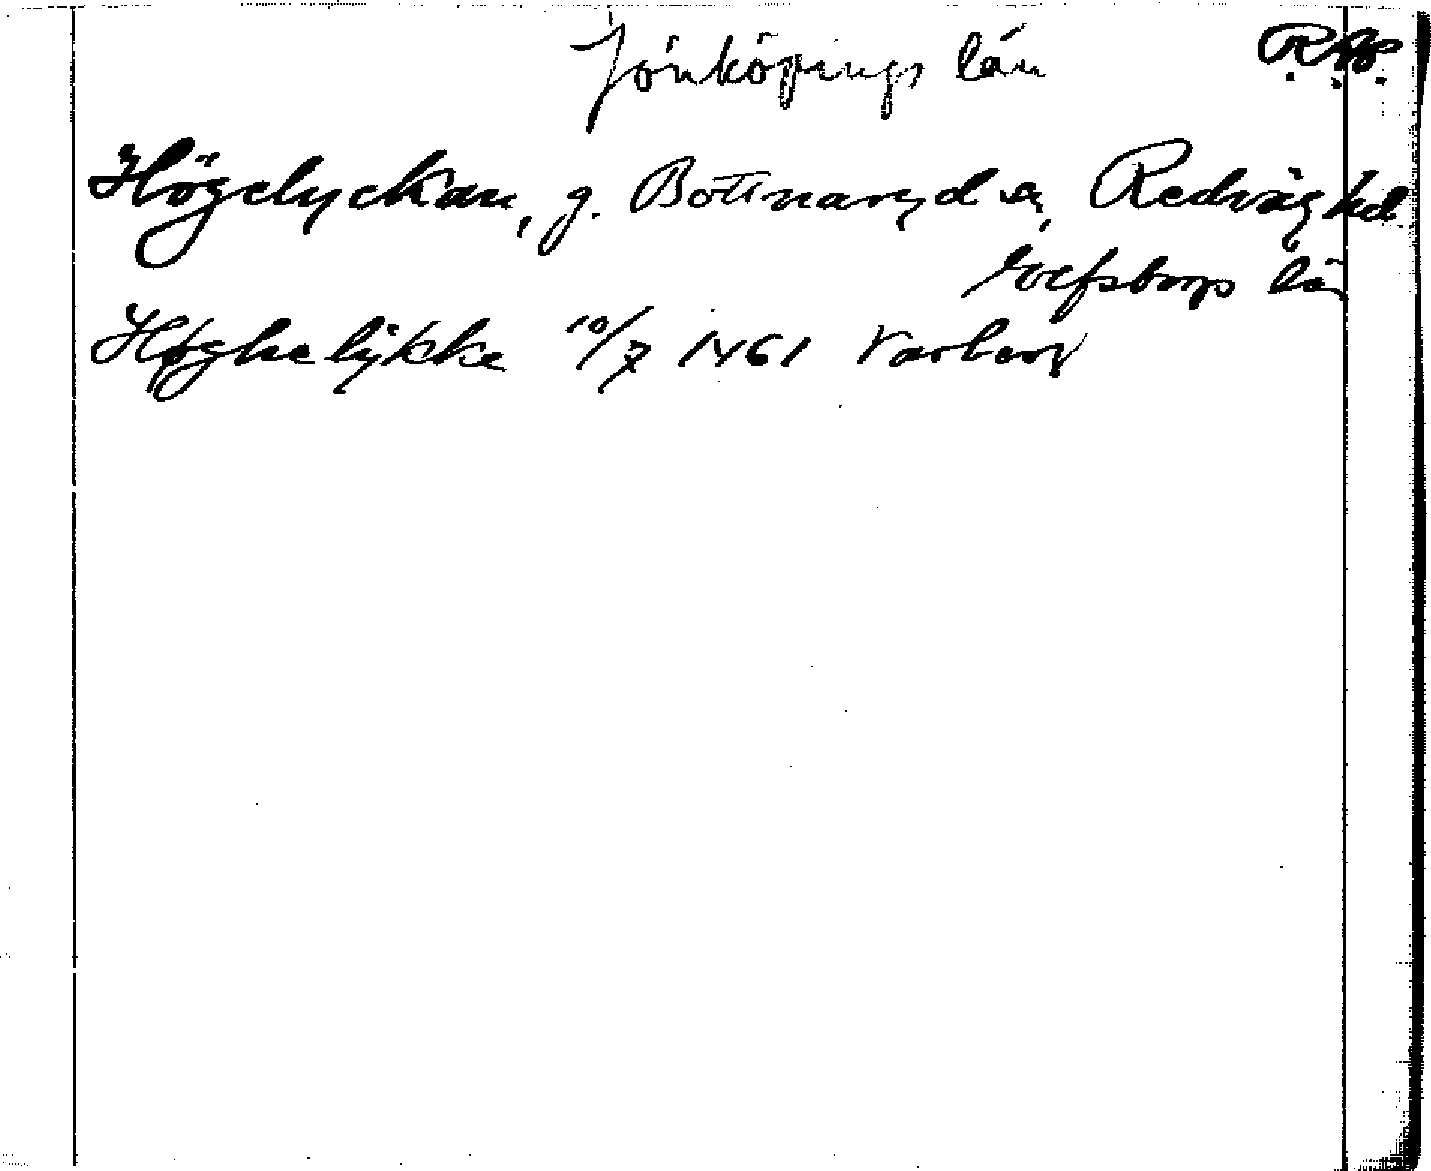 Jönköpings län R.A.
Högelyckan, g. Bottnaryds sn, Redvägs hd
Elfsborgs län
Høghelykke 10/7 1461 Varberg